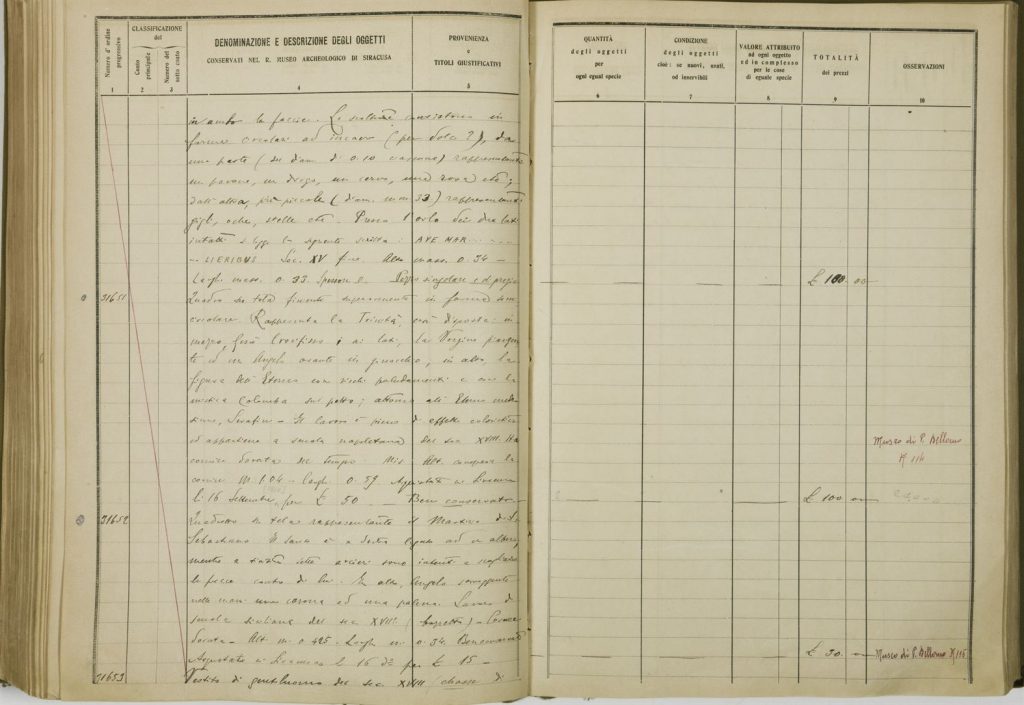 Numero d'ordine progressivo
CLASSIFICAZIONE del
Conto principale
Numero del sotto conto
DENOMINAZIONE E DESCRIZIONE DEGLI OGGETTI
CONSERVATI NEL R. MUSEO ARCHEOLOGICO DI SIRACUSA
PROVENIENZA
e
TITOLI GIUSTIFICATIVI
1 2 3 4 5
in ambo le faccie. Le
forme circolari ad incavo (per dolci?), da
una parte (di diam. di 0.10 ciascuno) rappresentanti
un pavone, un drago, un cervo, una rosa etc;
dall'altra, più piccole (diam. mm 33) rappresentanti
gigli, oche, stelle etc. Presso l'orlo dei due lati
intatti si legge la seguente scritta: AVE MAR
LIERIBUS Sec. XV fine. Alt. mass. 0.34 -
Largh. mass. 0.33 Spessore Pezzo singolare e di pregio
31651 Quadro su tela finente superiormente in forma semi
circolare. Rappresenta la Trinità, così disposta: in
mezzo, Gesù Crocifisso; ai lati, la Vergine
ed un Angelo orante in ginocchio, in alto, la
figura dell'Eterno con ricchi paludamenti e con la
mistica Colomba sul petto; attorno all'Eterno
Serafini. Il lavoro è pieno di effetti coloristici
ed appartiene a scuola napoletana del sec XVIII. Ha
cornice dorata del tempo. Mis. Alt. compresa la
cornice M. 1.04 - largh. 0.79 Acquistato a Siracusa
li 16 Settembre, per £ 50 - Ben conservato -
31652 Quadretto su tela rappresentante il Martirio di S.
Sebastiano. Il santo è a destra legato ad un albero,
mentre a sinistra sette arcieri sono intenti a scagliare
le frecce contro di lui. In alto, Angelo
nelle mani una corona ed una palma. Lavoro di
scuola siciliana del sec XVIII (bozzetto) - Cornice
dorata - Alt. m. 0.425 - Largh. m. 0.34.
Acquistato a Siracusa li 16 per £ 15 -
31653 Vestito di gentiluomo del sec XVIII di
QUANTITÀ
degli oggetti
per
ogni egual specie
CONDIZIONE
degli oggetti
cioè: se nuovi, usati,
od inservibili
VALORE ATTRIBUITO
ad ogni oggetto
ed in complesso
per le cose
di eguale specie
TOTALITÀ
dei prezzi
OSSERVAZIONI
6 7 8 9 10
£ 100 00
Museo di P. Bellomo
N 114
£ 100
£ 30. Museo di P. Bellomo N 115